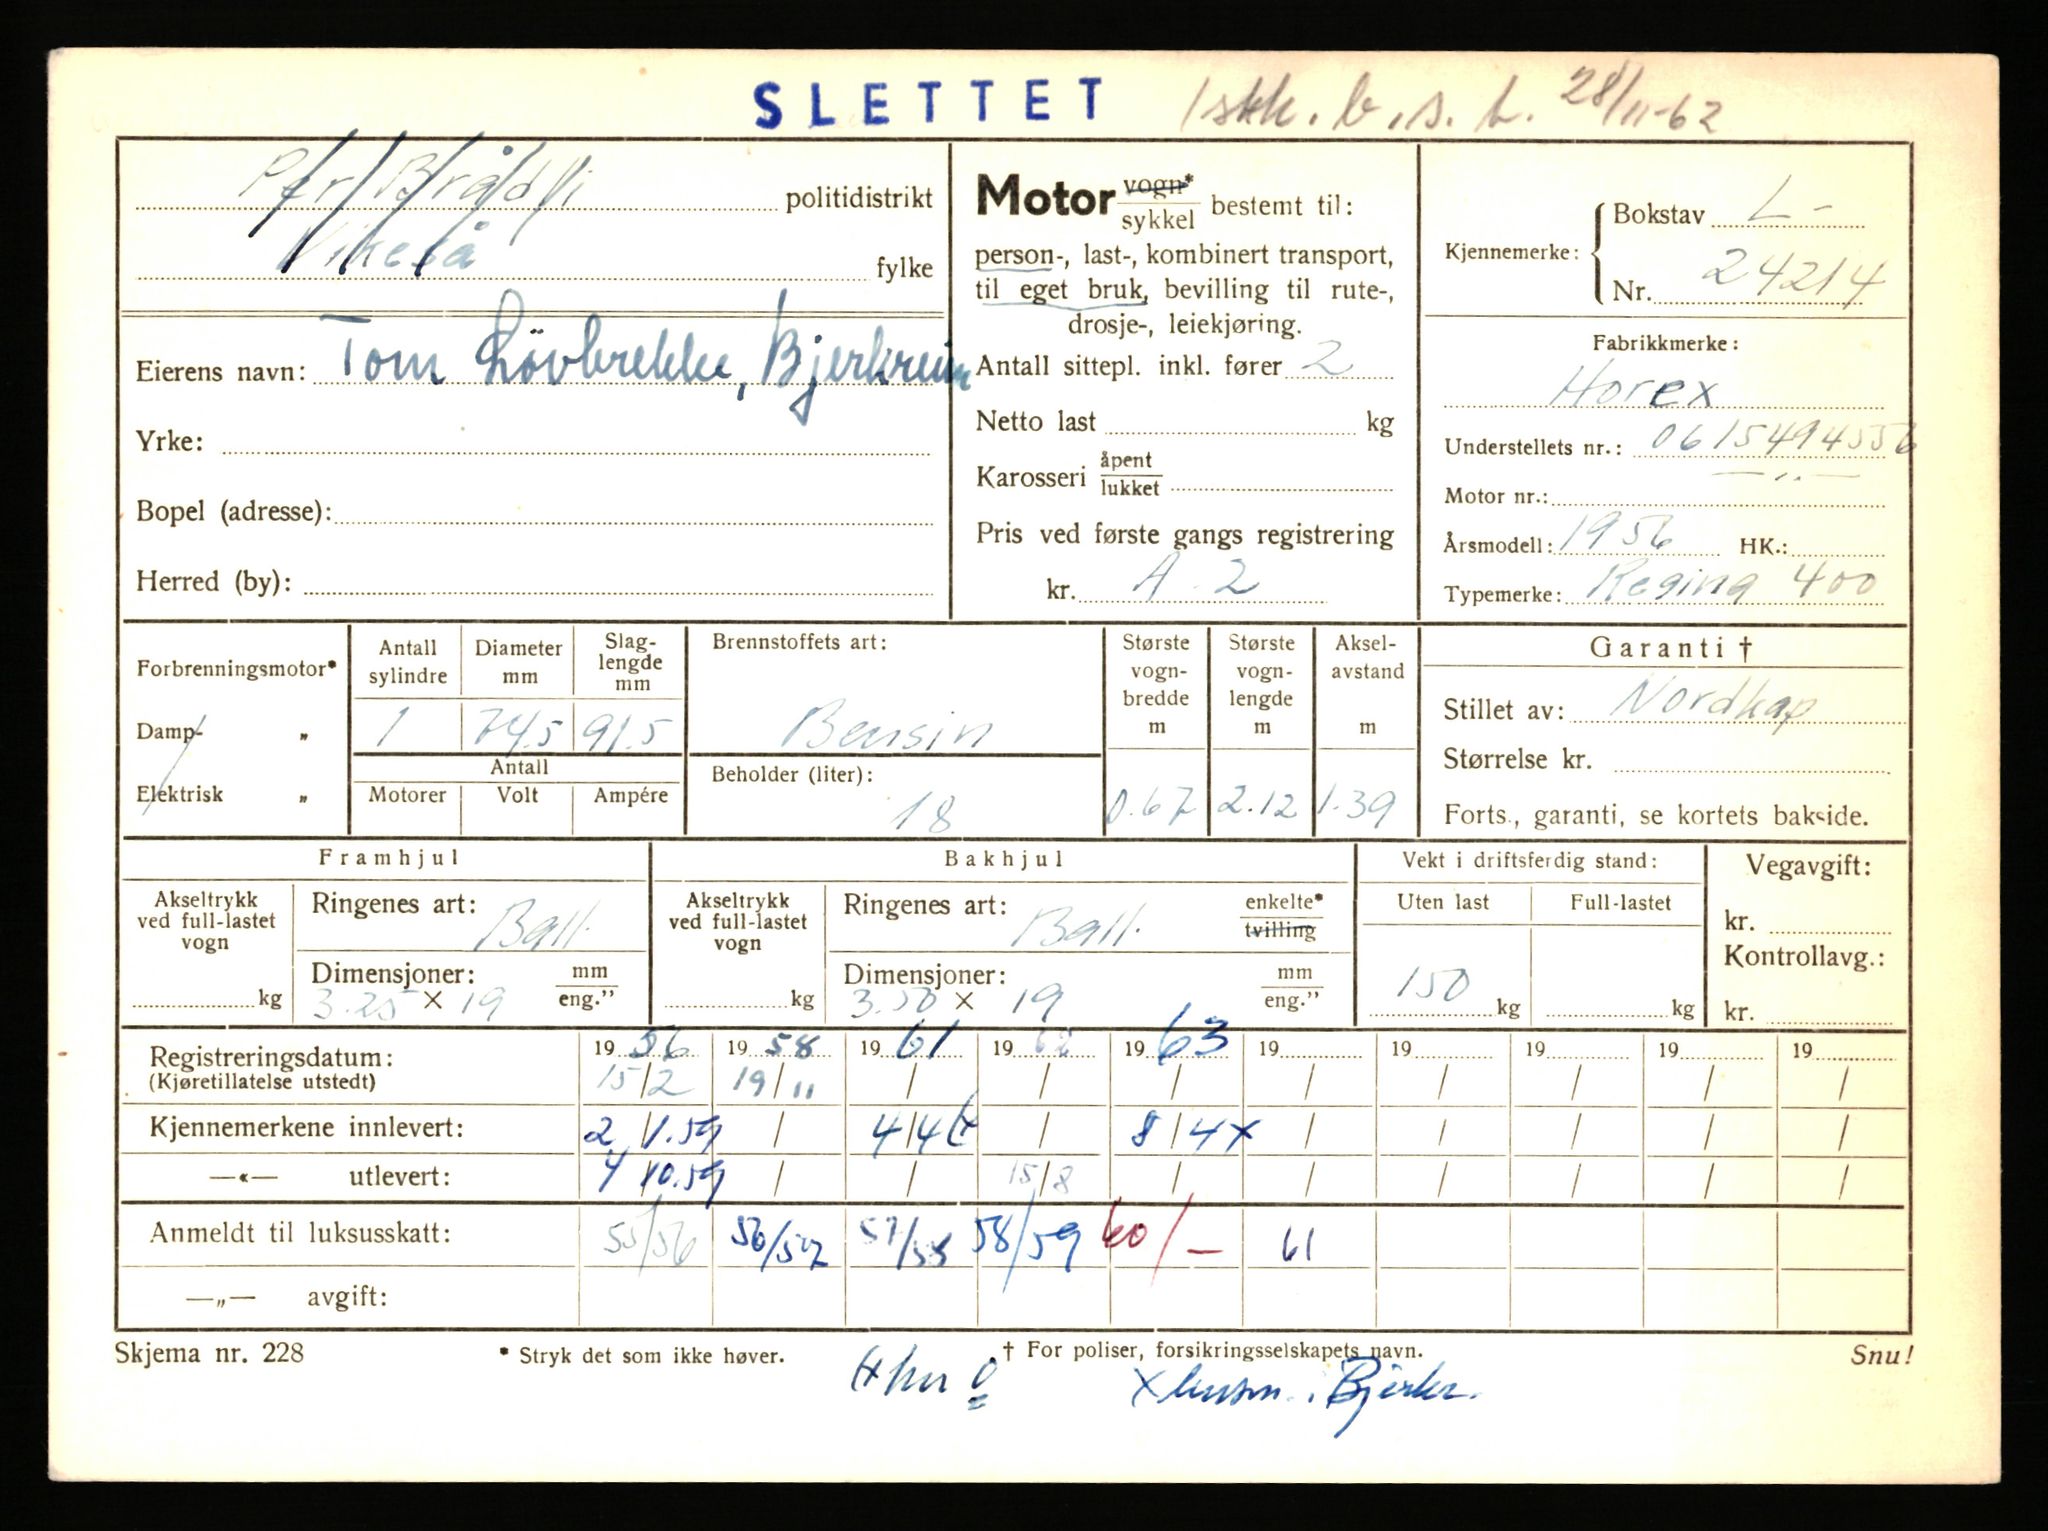 SLETTET 28/11-62
Per Brådli politidistrikt
Vikeså fylke
Eierens navn: Tom Lövbrekke, Bjerkreim
Yrke:
Bopel (adresse):
Herred (by):
Motor vogn* / sykkel bestemt til:
person-, last-, kombinert transport,
til eget bruk, bevilling til rute-,
drosje-, leiekjøring.
Antall sittepl. inkl. fører 2
Netto last kg
Karosseri åpent / lukket
Pris ved første gangs registrering
kr. A-2
Kjennemerke: Bokstav L-
Nr. 24214
Fabrikkmerke:
Horex
Understellets nr.: 0615494556
Motor nr.: —„—
Årsmodell: 1956 HK.:
Typemerke: Regina 400
Forbrenningsmotor*
Damp- „
Elektrisk „
Antall sylindre Diameter mm Slag-lengde mm
1 74.5 91.5
Antall
Motorer Volt Ampére
Brennstoffets art:
Bensin
Beholder (liter):
18
Største vogn-bredde m Største vogn-lengde m Aksel-avstand m
0.67 2.12 1.39
Garanti †
Stillet av: Nordkap
Størrelse kr.
Forts., garanti, se kortets bakside.
Framhjul
Akseltrykk ved full-lastet vogn kg
Ringenes art: Ball.
Dimensjoner: mm / eng."
3.25 × 19
Bakhjul
Akseltrykk ved full-lastet vogn kg
Ringenes art: Ball. enkelte* / tvilling
Dimensjoner: mm / eng."
3.50 × 19
Vekt i driftsferdig stand:
Uten last Full-lastet
150 kg kg
Vegavgift:
kr.
Kontrollavg.:
kr.
Registreringsdatum: 1956 1958 1961 1962 1963 19 19 19 19 19
(Kjøretillatelse utstedt) 15/2 19/11 / / / / / / / /
Kjennemerkene innlevert: 2/1.59 / 4/4 / 8/4 x / / / / /
—«— utlevert: 4/10.59 / / 15/8 / / / / / /
Anmeldt til luksusskatt: 55/56 56/57 57/58 58/59 60/— 61
—„— avgift:
Skjema nr. 228 * Stryk det som ikke høver. † For poliser, forsikringsselskapets navn. Snu!